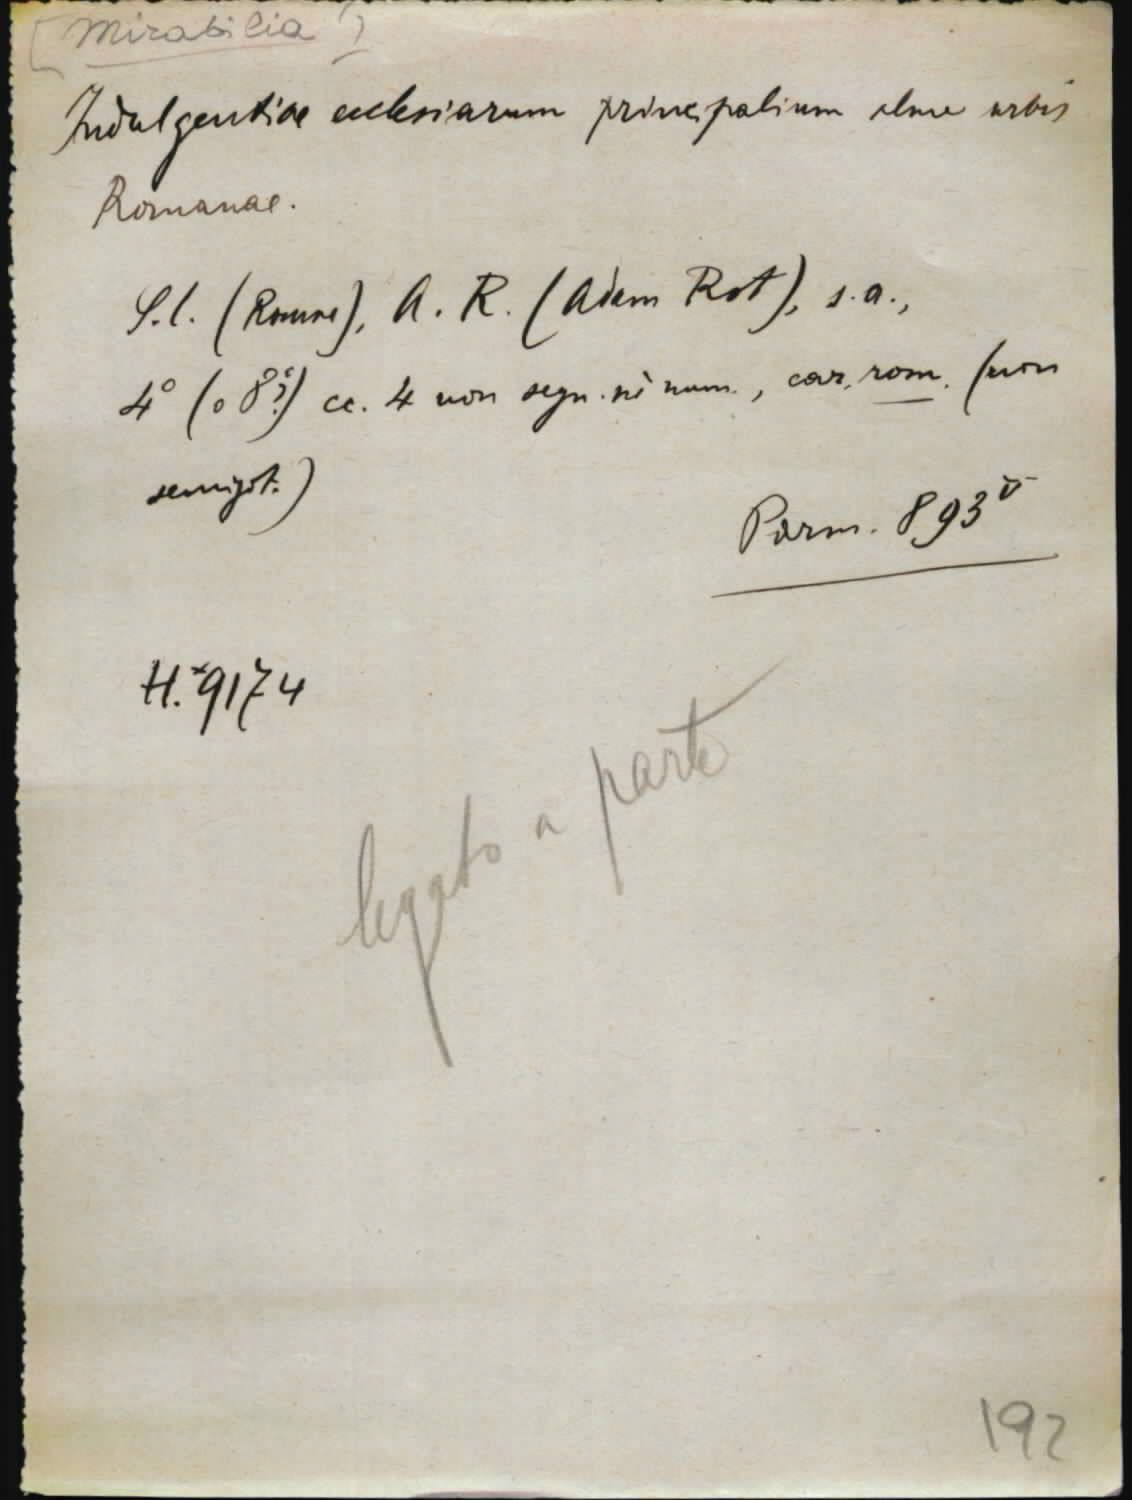 [Mirabilia]
Indulgentiae ecclesiarum principalium alme urbis
Romanae.
S.l. (Romae), A. R. (Adam Rot), s.a.,
4° (o 8°?) cc. 4 non segn. nè num., car. rom. (non
semigot.)
Parm. 893
H.*9174
legato a parte
192